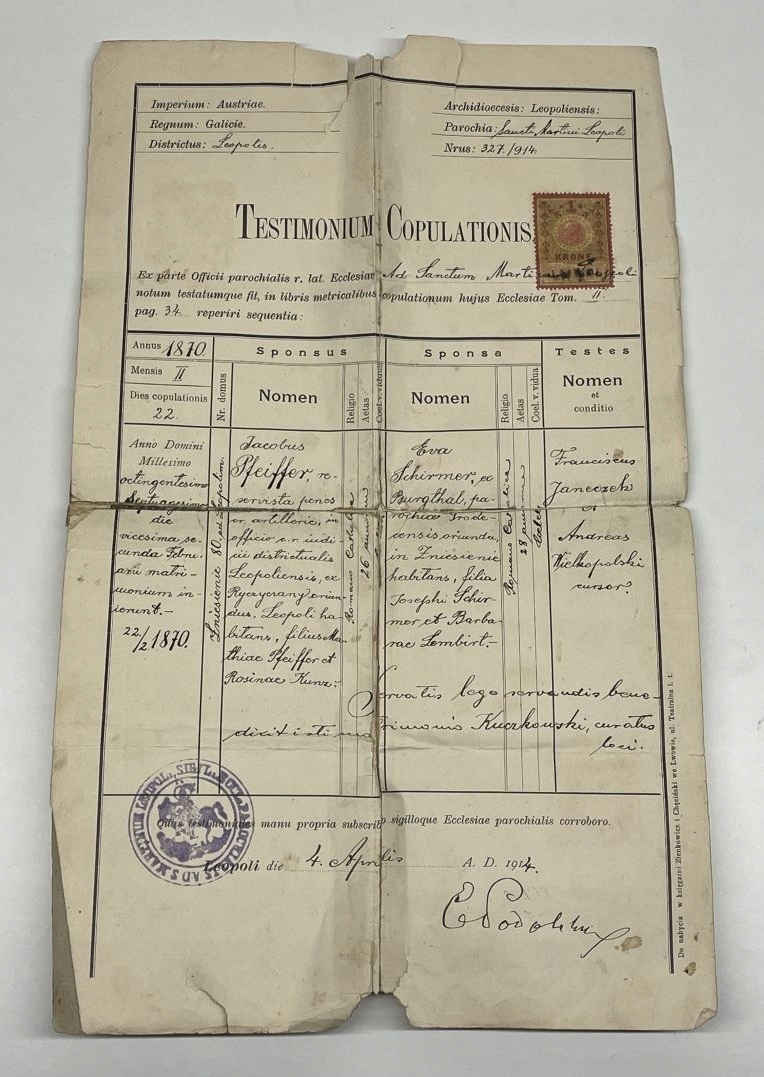 Imperium: Austriae.
Regnum: Galicie.
Districtus: Leopolis.
Archidioecesis: Leopoliensis:
Parochia: Sancti Martini Leopoli
Nrus: 327./914.
TESTIMONIUM COPULATIONIS
1
KRONE
Ex parte Officii parochialis r. lat. Ecclesiae Ad Sanctum Martinum Leopoli
notum testatumque fit, in libris metricalibus copulationum hujus Ecclesiae Tom. II.
pag. 34 reperiri sequentia:
Annus 1870.
Mensis II
Dies copulationis
22.
Nr. domus
Sponsus
Nomen
Religio
Aetas
Coel. v. viduus
Sponsa
Nomen
Religio
Aetas
Coel. v. vidua
Testes
Nomen
et
conditio
Anno Domini
Millesimo
octingentesimo
Septuagesimo
die
vicesima se-
cunda Febru-
arii matri-
monium in-
ierunt.-
22/2 1870.
Zniesienie 80, ad Leopolim.
Jacobus
Pfeiffer, re-
servista penes
or. artillerie, in
officio c.r. iudi-
cii districtualis
Leopoliensis, ex
Ryczyczany oriun-
dus, Leopoli ha-
bitans, filius Ma-
thiae Pfeiffer et
Rosinae Kunz.-
Romano Catholica
26 annorum
Eva
Schirmer, ex
Burgthal, pa-
rochiae Grode-
censis oriunda,
in Zniesienie
habitans, filia
Josephi Schir-
mer et Barba-
rae Lembirt.-
Romano Catholica
28 annorum
Coelebs
Franciscus
Janeczek
et
Andreas
Wielkopolski
cursor.
Servatis lege servandis bene-
dixit isti matrimonio Kuczkowski, curatus
loci.
Quas testimoniales manu propria subscribo sigilloque Ecclesiae parochialis corroboro.
Leopoli die 4. Aprilis A. D. 1914.
Do nabycia w księgarni Zienkowicz i Chęciński we Lwowie, ul. Teatralna l. 1.